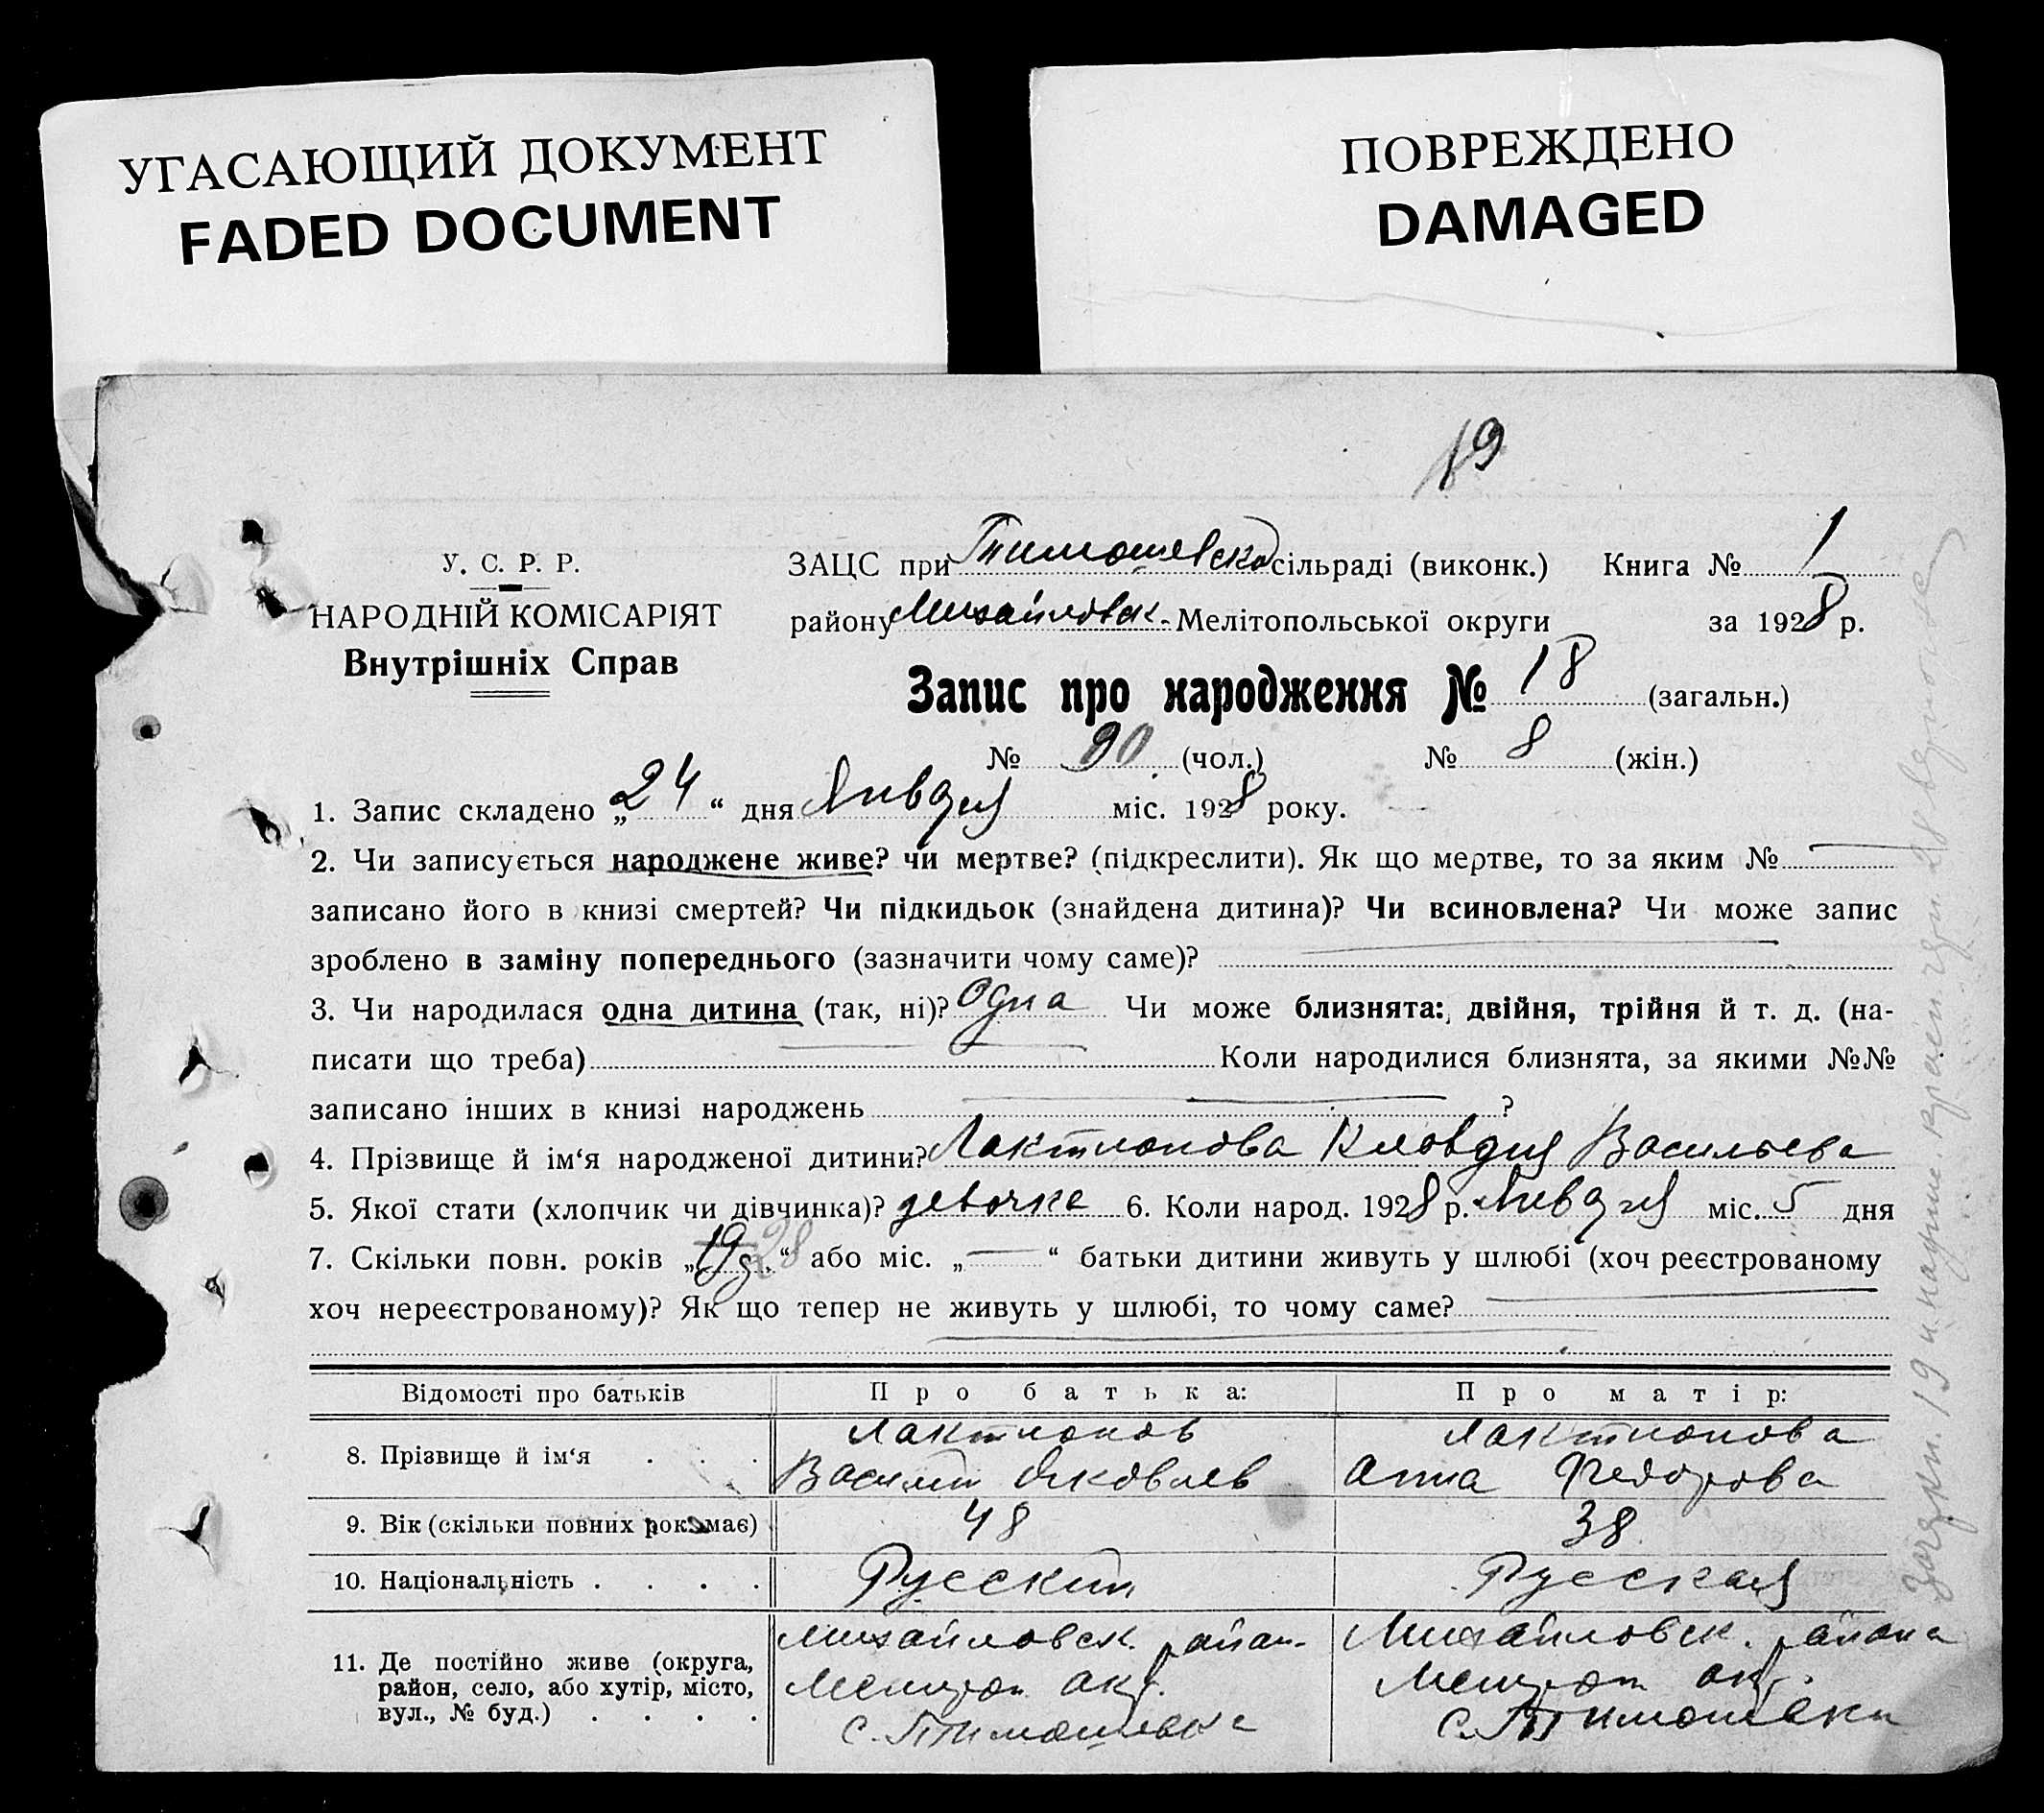 УГАСАЮЩИЙ ДОКУМЕНТ
FADED DOCUMENT
ПОВРЕЖДЕНО
DAMAGED
19
У. С. Р. Р.
НАРОДНІЙ КОМІСАРІЯТ
Внутрішніх Справ
ЗАЦС при Тимошевско сільраді (виконк.) Книга № 1
району Михайловск. Мелітопольської округи за 1928 р.
Запис про народження № 18 (загальн.)
№ (чол.) № 8 (жін.)
1. Запис складено „24“ дня Января міс. 1928 року.
2. Чи записується народжене живе? чи мертве? (підкреслити). Як що мертве, то за яким №
записано його в книзі смертей? Чи підкидьок (знайдена дитина)? Чи всиновлена? Чи може запис
зроблено в заміну попереднього (зазначити чому саме)?
3. Чи народилася одна дитина (так, ні)? Одна Чи може близнята: двійня, трійня й т. д. (на-
писати що треба) Коли народилися близнята, за якими №№
записано інших в книзі народжень ?
4. Прізвище й ім‘я народженої дитини? Лактионова Клавдия Васильева
5. Якої стати (хлопчик чи дівчинка)? девочка 6. Коли народ. 1928 р. Января міс. 5 дня
7. Скільки повн. років „19 28“ або міс. „—“ батьки дитини живуть у шлюбі (хоч реєстрованому
хоч нереєстрованому)? Як що тепер не живуть у шлюбі, то чому саме?
Відомості про батьків Про батька: Про матір:
8. Прізвище й ім‘я . . . Лактионов Лактионова
Василий Яковлев Анна Федорова
9. Вік (скільки повних рок. має) 48 38
10. Національність . . . . Русский Русская
11. Де постійно живе (округа, район, село, або хутір, місто, вул., № буд.) . . . .
Михайловск. район.
Мелитоп окр.
с. Тимошевка
Михайловск. района
Мелитоп окр.
с. Тимошевки